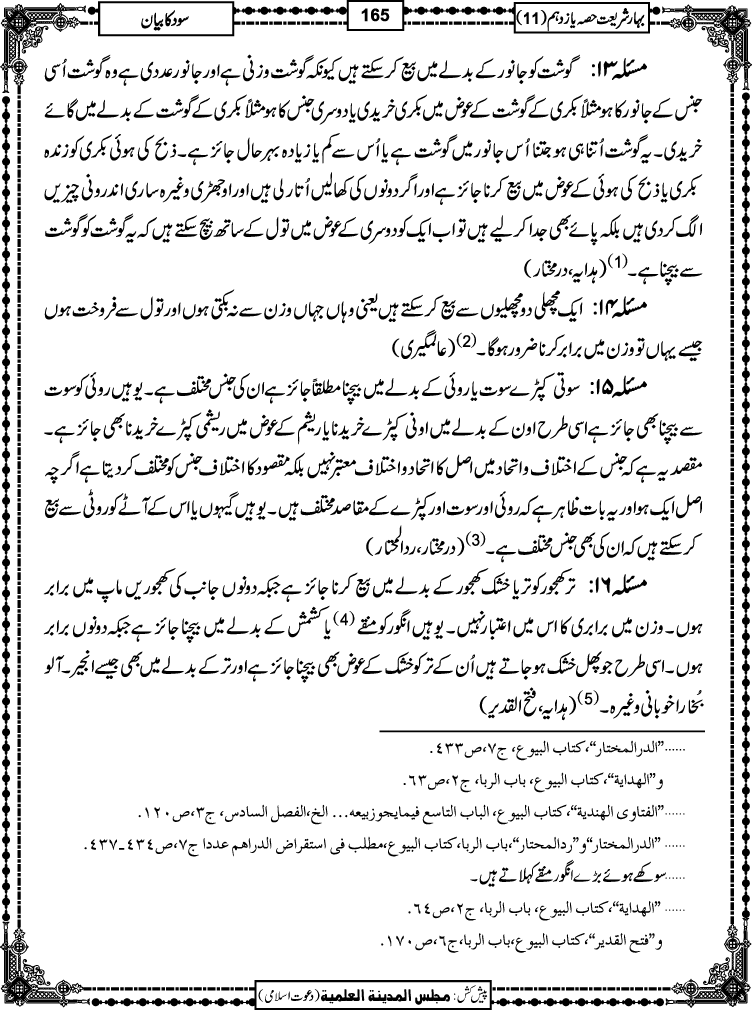 بہارِ شریعت حصہ یازدہم (11)
165
سود کا بیان
مسئلہ ۱۳: گوشت کو جانور کے بدلے میں بیع کر سکتے ہیں کیونکہ گوشت وزنی ہے اور جانور عددی ہے وہ گوشت اُسی
جنس کے جانور کا ہو مثلاً بکری کے گوشت کے عوض میں بکری خریدی یا دوسری جنس کا ہو مثلاً بکری کے گوشت کے بدلے میں گائے
خریدی۔ یہ گوشت اُتنا ہی ہو جتنا اُس جانور میں گوشت ہے یا اُس سے کم یا زیادہ بہرحال جائز ہے۔ ذبح کی ہوئی بکری کو زندہ
بکری یا ذبح کی ہوئی کے عوض میں بیع کرنا جائز ہے اور اگر دونوں کی کھالیں اُتار لی ہیں اور اوجھڑی وغیرہ ساری اندرونی چیزیں
الگ کر دی ہیں بلکہ پائے بھی جدا کر لیے ہیں تو اب ایک کو دوسری کے عوض میں تول کے ساتھ بیچ سکتے ہیں کہ یہ گوشت کو گوشت
سے بیچنا ہے۔(1) (ہدایہ، درمختار)
مسئلہ ۱۴: ایک مچھلی دو مچھلیوں سے بیع کر سکتے ہیں یعنی وہاں جہاں وزن سے نہ بکتی ہوں اور تول سے فروخت ہوں
جیسے یہاں تو وزن میں برابر کرنا ضرور ہوگا۔(2) (عالمگیری)
مسئلہ ۱۵: سوتی کپڑے سوت یا روئی کے بدلے میں بیچنا مطلقاً جائز ہے ان کی جنس مختلف ہے۔ یوہیں روئی کو سوت
سے بیچنا بھی جائز ہے اسی طرح اون کے بدلے میں اونی کپڑے خریدنا یا ریشم کے عوض میں ریشمی کپڑے خریدنا بھی جائز ہے۔
مقصد یہ ہے کہ جنس کے اختلاف و اتحاد میں اصل کا اتحاد و اختلاف معتبر نہیں بلکہ مقصود کا اختلاف جنس کو مختلف کر دیتا ہے اگرچہ
اصل ایک ہو اور یہ بات ظاہر ہے کہ روئی اور سوت اور کپڑے کے مقاصد مختلف ہیں۔ یوہیں گیہوں یا اس کے آٹے کو روٹی سے بیع
کر سکتے ہیں کہ ان کی بھی جنس مختلف ہے۔(3) (درمختار، ردالمحتار)
مسئلہ ۱۶: تر کھجور کو تر یا خشک کھجور کے بدلے میں بیع کرنا جائز ہے جبکہ دونوں جانب کی کھجوریں ماپ میں برابر
ہوں۔ وزن میں برابری کا اس میں اعتبار نہیں۔ یوہیں انگور کو منقے(4) یا کشمش کے بدلے میں بیچنا جائز ہے جبکہ دونوں برابر
ہوں۔ اسی طرح جو پھل خشک ہو جاتے ہیں اُن کے تر کو خشک کے عوض بھی بیچنا جائز ہے اور تر کے بدلے میں بھی جیسے انجیر۔ آلو
بُخارا خوبانی وغیرہ۔(5) (ہدایہ، فتح القدیر)
......”الدرالمختار“،کتاب البیوع، ج۷،ص۴۳۳.
و”الھدایة“،کتاب البیوع، باب الربا، ج۲،ص۶۳.
......”الفتاوی الھندیة“،کتاب البیوع، الباب التاسع فیمایجوزبیعہ... الخ،الفصل السادس، ج۳،ص۱۲۰.
...... ”الدرالمختار“و”ردالمحتار“،باب الربا،کتاب البیوع،مطلب فی استقراض الدراھم عددا ج۷،ص۴۳۴۔۴۳۷.
......سوکھے ہوئے بڑے انگور منقے کہلاتے ہیں۔
...... ”الھدایة“،کتاب البیوع، باب الربا، ج۲،ص۶۴.
و”فتح القدیر“، کتاب البیوع،باب الربا،ج۶،ص۱۷۰.
پیش کش: مجلس المدینة العلمیة (دعوتِ اسلامی)